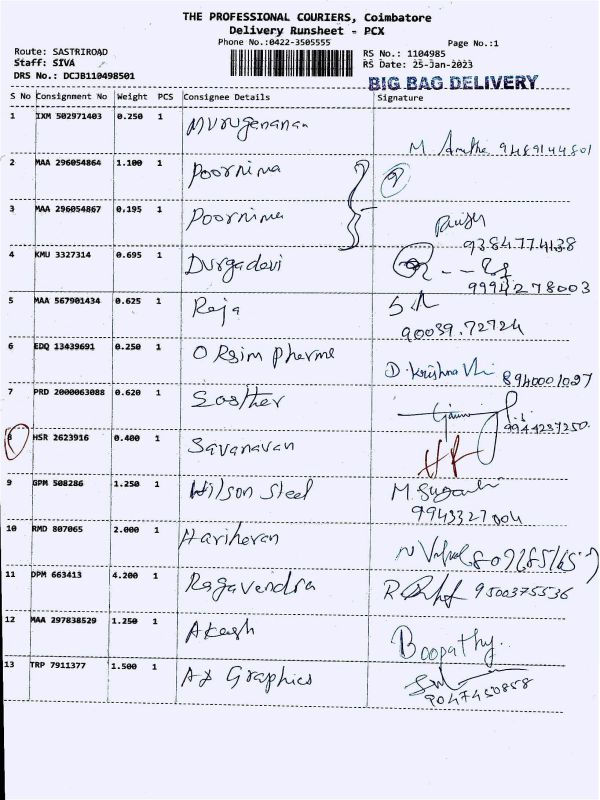 THE PROFESSIONAL COURIERS, Coimbatore
Delivery Runsheet - PCX
Phone No.:0422-3505555 Page No.:1
Route: SASTRIROAD RS No.: 1104985
Staff: SIVA RS Date: 25-Jan-2023
DRS No.: DCJB110498501 BIG BAG DELIVERY
S No Consignment No Weight PCS Consignee Details Signature
1 IXM 502971403 0.250 1 Murugananan
M. Amutha 9489144801
2 MAA 296054864 1.100 1 Poornima
3 MAA 296054867 0.195 1 Poornima
9384774138
4 KMU 3327314 0.695 1 Durgadevi
9994278003
5 MAA 567901434 0.625 1 Raja
90039.72724
6 EDQ 13439691 0.250 1 Orsim Pharme
D. Krishna 8940001097
7 PRD 2000063088 0.620 1 Sosther
9944237250.
8 HSR 2623916 0.400 1 Savanavan
9 GPM 508286 1.250 1 Wilson Steel
M. Suganthi
9943327004
10 RMD 807065 2.000 1 Hariharan
11 DPM 663413 4.200 1 Ragavendra
9500375536
12 MAA 297838529 1.250 1 Akash
Boopathy..
13 TRP 7911377 1.500 1 AX Graphics
9047450858